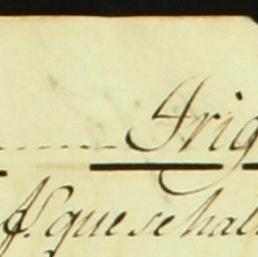 Trig
ff. que se hall